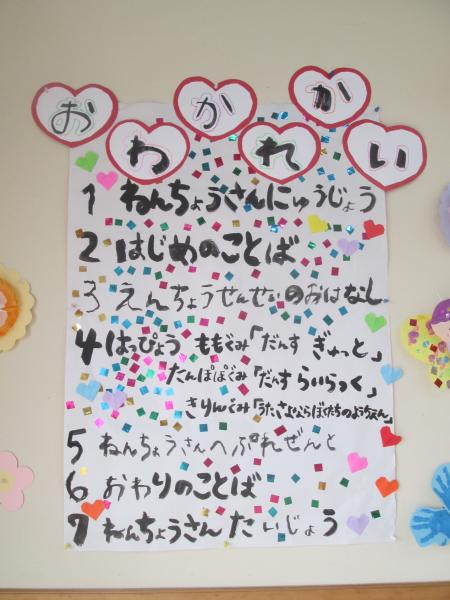 おわかれかい
1 ねんちょうさんにゅうじょう
2 はじめのことば
3 えんちょうせんせいのおはなし
4 はっぴょう ももぐみ「だんす ぎゅっと」
たんぽぽぐみ「だんす らいらっく」
きりんぐみ「うた さよならぼくたちのようちえん」
5 ねんちょうさんへぷれぜんと
6 おわりのことば
7 ねんちょうさんたいじょう